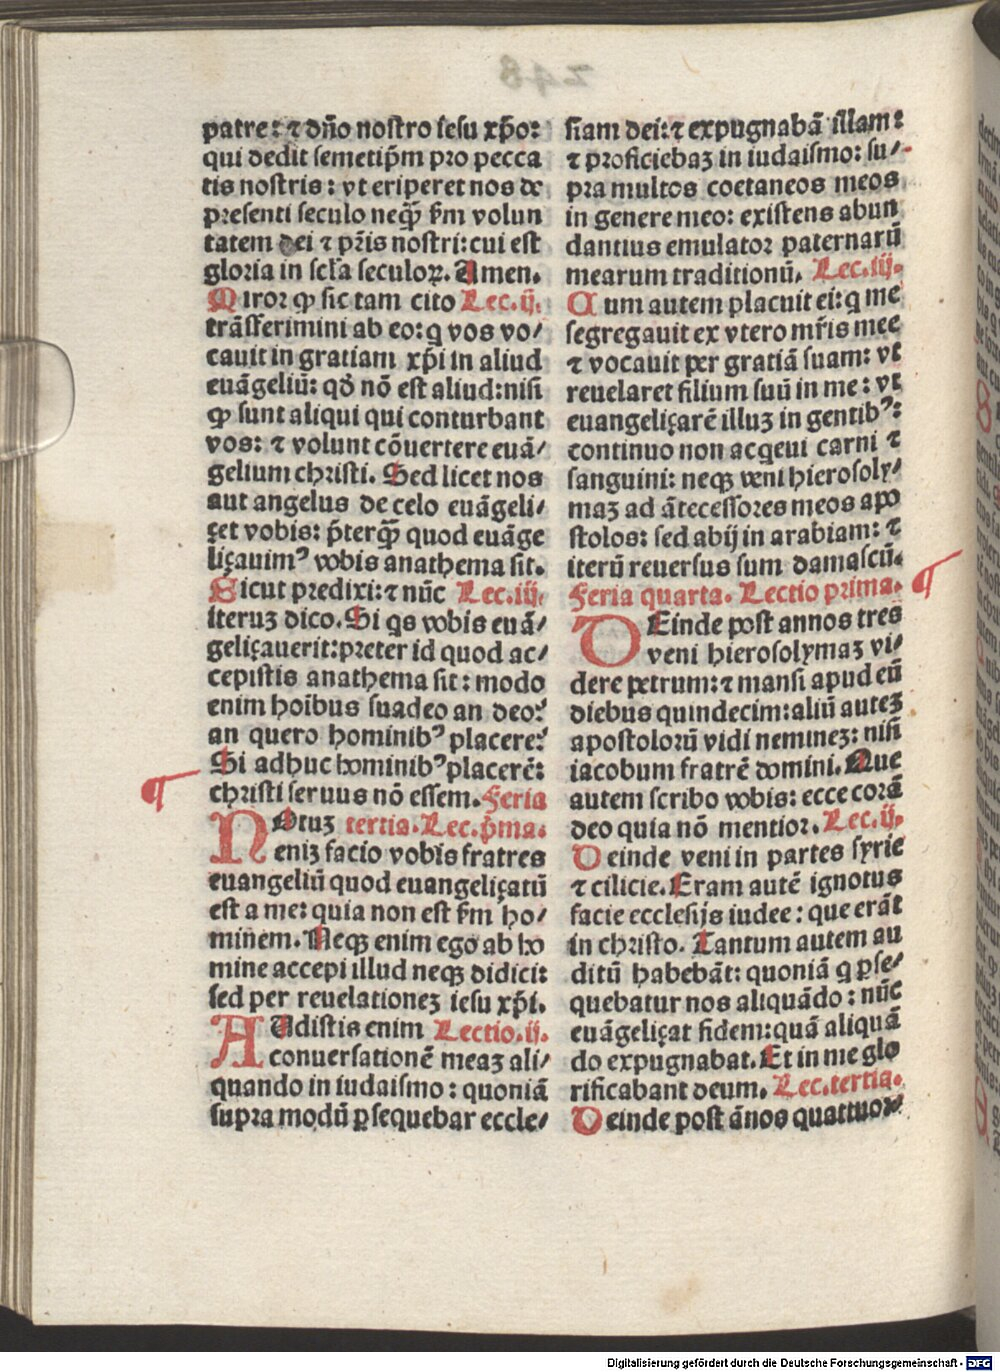 patre: ⁊ dn̄o nostro iesu xp̄o:
qui dedit semetip̄m pro pecca
tis nostris: vt eriperet nos de
presenti seculo neq̄ȝ ẜm volun
tatem dei ⁊ pr̄is nostri: cui est
gloria in scl̄a seculoꝝ. Amen.
Miror ꝙ sic tam cito Lec.ij.
trāsferimini ab eo: q vos vo/
cauit in gratiam xp̄i in aliud
euāgeliū: qd̄ nō est aliud: nisi
ꝙ sunt aliqui qui conturbant
vos: ⁊ volunt cōuertere euā/
gelium christi. Sed licet nos
aut angelus de celo euāgeli/
çet vobis: p̄terq̄ȝ quod euāge
liçauimꝰ vobis anathema sit.
Sicut predixi: ⁊ nūc Lec.iij.
iteruȝ dico. Si qs vobis euā/
geliçauerit: preter id quod ac/
cepistis anathema sit: modo
enim hoībus suadeo an deo?
an quero hominibꝰ placere?
Si adhuc hominibꝰ placerē:
christi seruus nō essem. Feria
NOtuȝ tertia. Lec.p̄ma.
eniȝ facio vobis fratres
euangeliū quod euangeliçatū
est a me: quia non est ẜm ho/
minem. Neqȝ enim ego ab ho
mine accepi illud neqȝ didici:
sed per reuelationeȝ iesu xp̄i.
AUdistis enim Lectio.ij.
conuersationē meaȝ ali/
quando in iudaismo: quoniā
supra modū ꝑsequebar eccle/
siam dei: ⁊ expugnabā illam:
⁊ proficiebaȝ in iudaismo: su/
pra multos coetaneos meos
in genere meo: existens abun
dantius emulator paternarū
mearum traditionū. Lec.iij.
Cum autem placuit ei: q me
segregauit ex vtero mr̄is mee
⁊ vocauit per gratiā suam: vt
reuelaret filium suū in me: vt
euangeliçarē illuȝ in gentibꝰ:
continuo non acqeui carni ⁊
sanguini: neqȝ veni hierosoly/
maȝ ad ātecessores meos apo
stolos: sed abij in arabiam: ⁊
iterū reuersus sum damascū.
Feria quarta. Lectio prima.
DEinde post annos tres
veni hierosolymaȝ vi/
dere petrum: ⁊ mansi apud eū
diebus quindecim: aliū auteȝ
apostolorū vidi nemineȝ: nisi
iacobum fratrē domini. Que
autem scribo vobis: ecce corā
deo quia nō mentior. Lec.ij.
Deinde veni in partes syrie
⁊ cilicie. Eram autē ignotus
facie ecclesijs iudee: que erāt
in christo. Tantum autem au
ditū habebāt: quoniā q ꝑse/
quebatur nos aliquādo: nūc
euāgeliçat fidem: quā aliquā
do expugnabat. Et in me glo
rificabant deum. Lec.tertia.
Deinde post ānos quattuor/
Digitalisierung gefördert durch die Deutsche Forschungsgemeinschaft - DFG